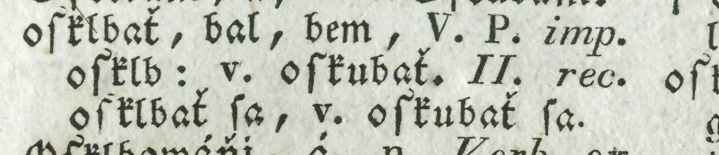 oſklbať, bal, bem, V. P. imp.
oſklb: v. oſkubať. II. rec.
oſklbať ſa, v. oſkubať ſa.